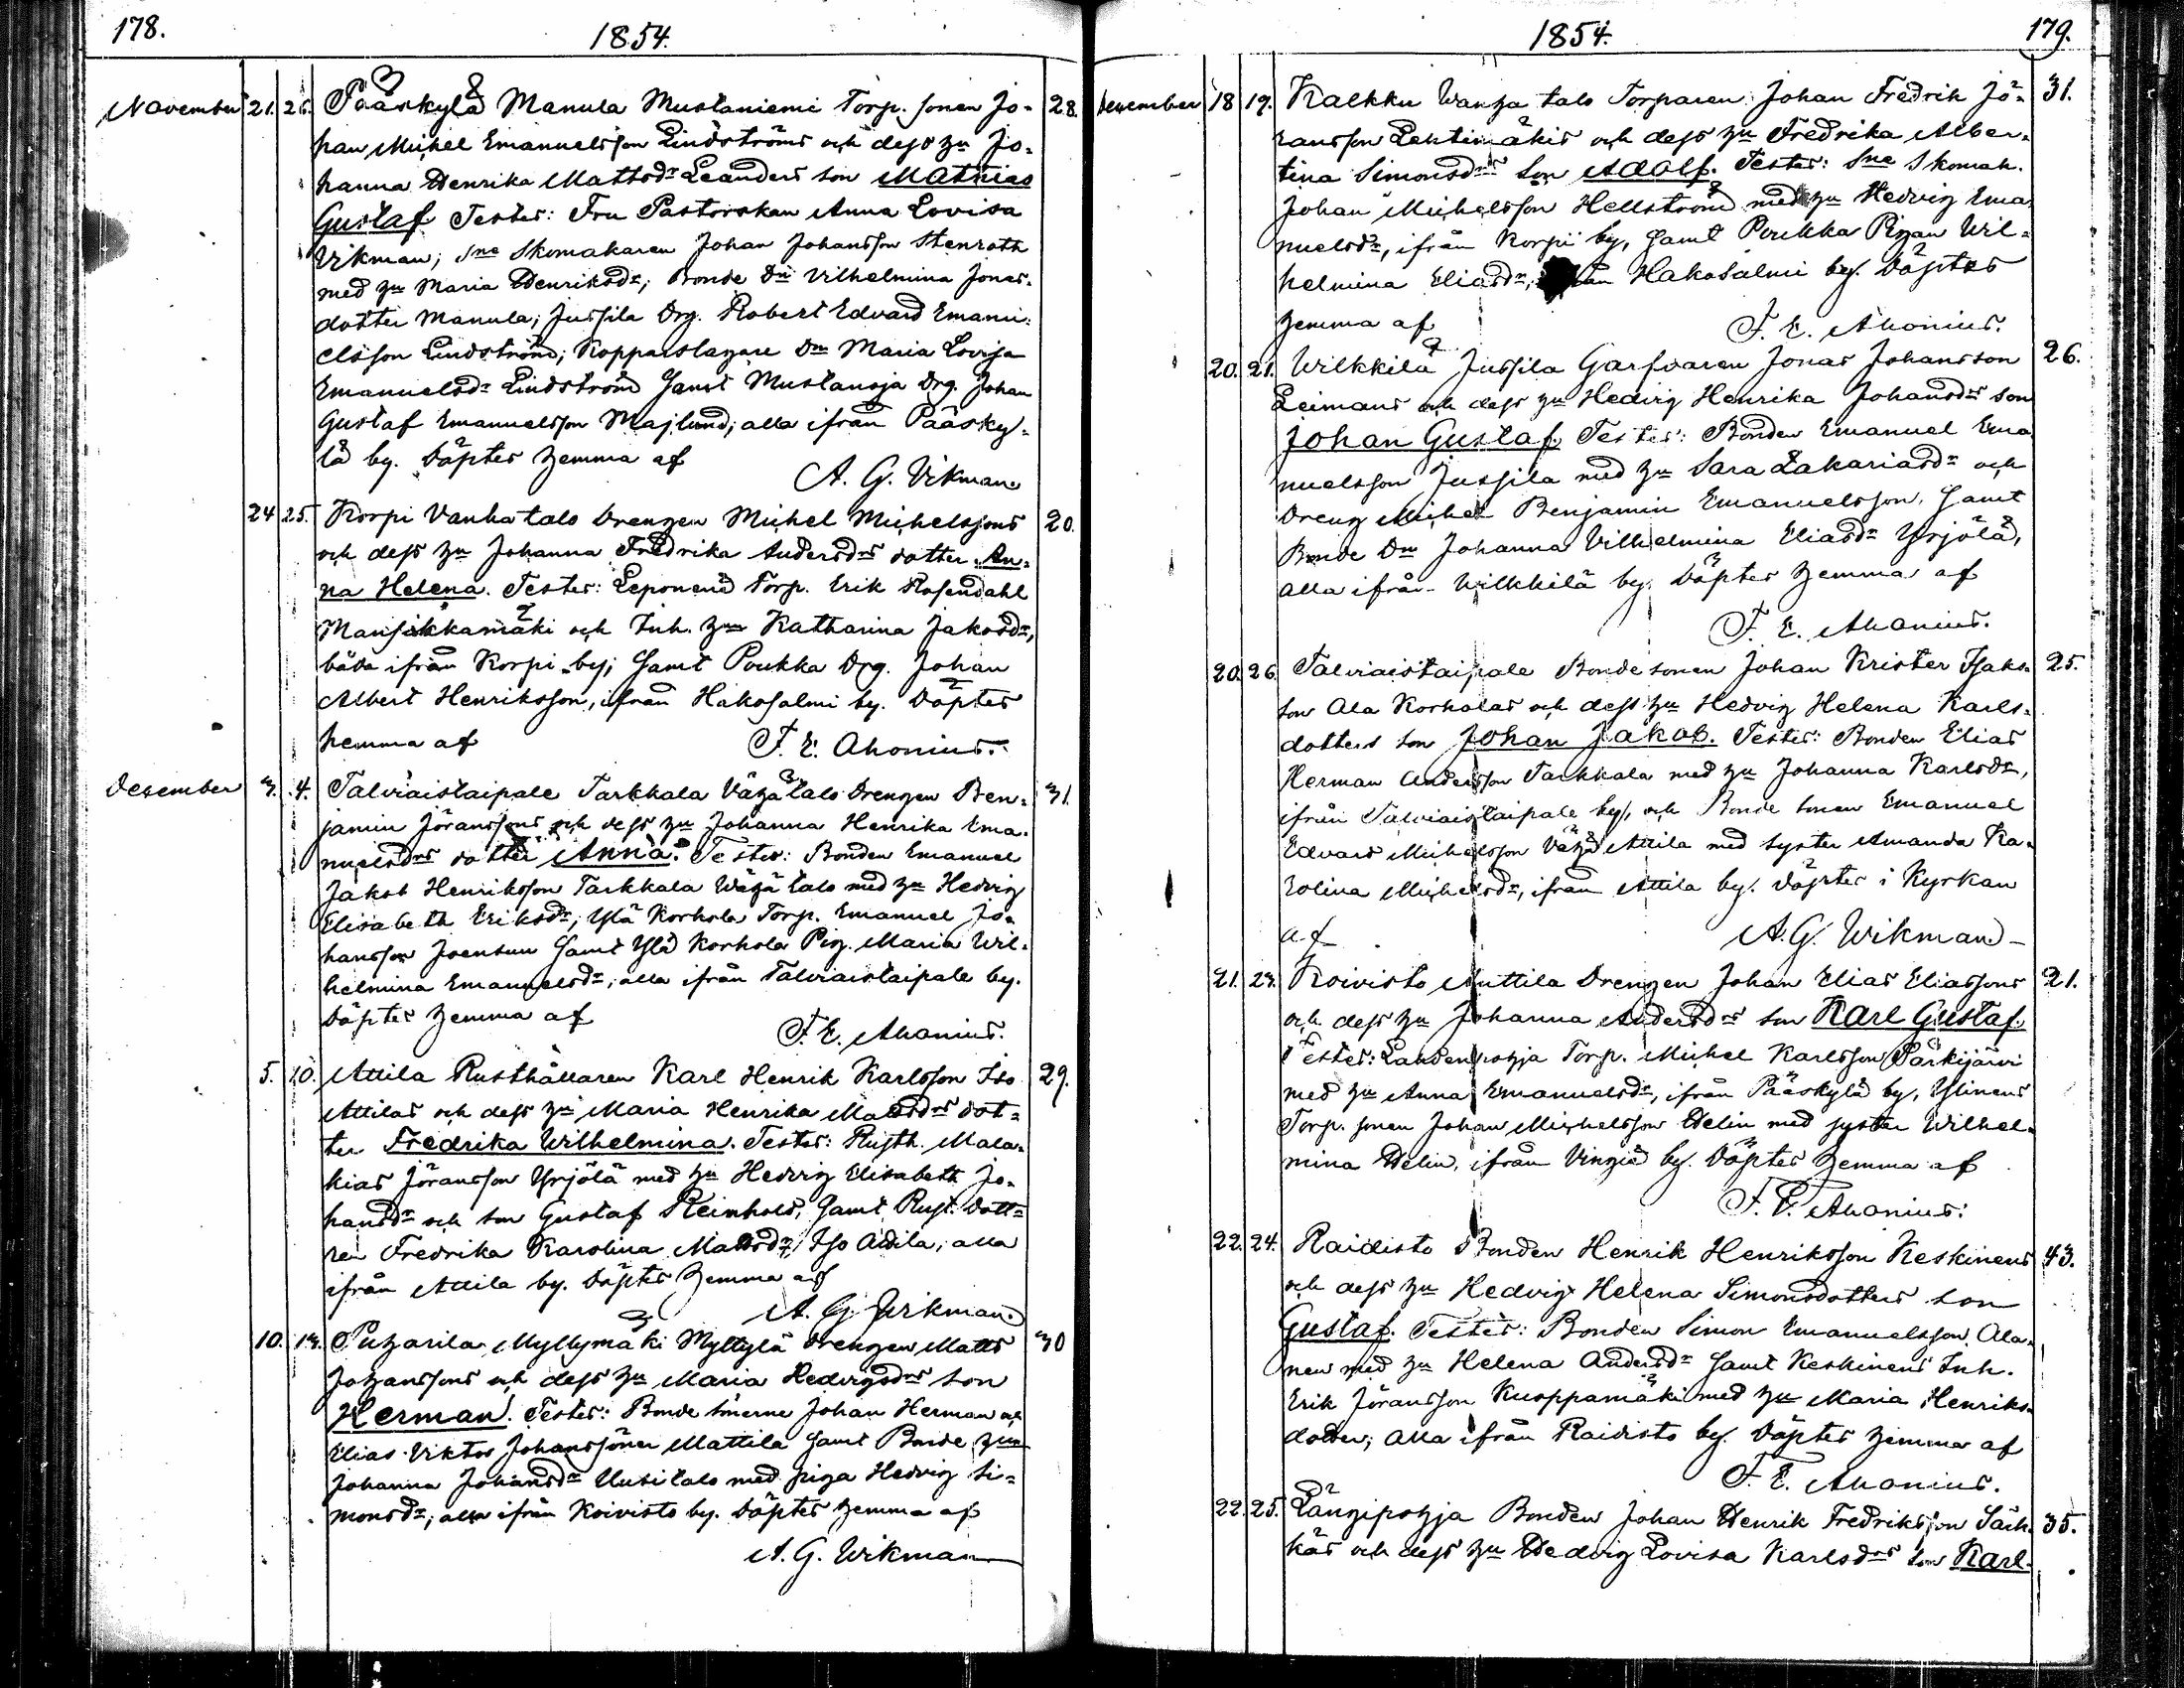 178.
1854.
November 21. 26. Pääskylä Manula Mustaniemi Torp. sonen Jo-
han Michel Emanuelsson Lindströms och dess hu Jo-
hanna Henrika Mattsdrs Leanders son Mathias
Gustaf Testes: Fru Pastorskan Anna Lovisa
Vikman; Sne Skomakaren Johan Johansson Stenroth
med hu Maria Henriksdr; Bonde Dn Vilhelmina Jonas-
dotter Manula; Jussila Drg. Robert Edvard Emanu-
elsson Lindström; Kopparslagare Dn Maria Lovisa
Emanuelsdr Lindström samt Mustanoja Drg. Johan
Gustaf Emanuelsson Majlund; alla ifrån Pääsky-
lä by. Döptes hemma af
A. G. Vikman
28.
24 25. Korpi Vanhatalo Drengen Michel Michelssons
och dess hu Johanna Fredrika Andersdrs dotter An-
na Helena. Testes: Leponend Torp. Erik Rosendahl
Mansikkamäki och Inh. hu Katharina Jakosdr,
båda ifrån Korpi by; samt Poukka Drg. Johan
Albert Henriksson, ifrån Hakosalmi by. Döptes
hemma af F. E. Ahonius.
20.
December 3. 4. Talviaistaipale Tarkkala Vähätalo Drengen Ben-
jamin Jöranssons och dess hu Johanna Henrika Ema-
nuelsdrs dotter Anna. Testes: Bonden Emanuel
Jakob Henriksson Tarkkala Wähätalo med hu Hedvig
Elisabeth Eriksdr; Ylä Korhola Torp. Emanuel Jo-
hansson Joensuu samt Ylä Korhola Pig. Maria Wil-
helmina Emanuelsdr; alla ifrån Talviaistaipale by.
Döptes hemma af
F. E. Ahonius.
31.
5. 10. Attila Rusthållaren Karl Henrik Karlsson Iso
Attilas och dess hu Maria Henrika Mattsdrs dot-
ter Fredrika Wilhelmina. Testes: Rusth. Mala-
kias Jöransson Yrjölä med hu Hedvig Elisabeth Jo-
hansdr och son Gustaf Reinhold, samt Rust. dott-
ren Fredrika Karolina Mattsdr Iso Attila; alla
ifrån Attila by. Döptes hemma af
A. G. Wikman.
29.
10. 13. Puharila Myllymäki Myttylä Drengen Matts
Johanssons och dess hu Maria Hedvigsdrs son
Herman. Testes: Bonde sönerne Johan Herman och
Elias Viktor Johanssöner Mattila samt Bonde hu
Johanna Johansdr Uusitalo med piga Hedvig Si-
monsdr; alla ifrån Koivisto by. Döptes hemma af
A. G. Wikman
30
1854.
179.
December 18 19. Kalkku Wanha talo Torparen Johan Fredrik Jö-
ransson Lehtimäkis och dess hu Fredrika Alber-
tina Simonsdrs son Adolf. Testes: Sne Skomak.
Johan Michelsson Hellström med hu Hedvig Ema
nuelsdr, ifrån Korpi by, samt Poukka Pigan Wil-
helmina Eliasdr, ifrån Hakosalmi by. Döptes
hemma af F. E. Ahonius.
31.
20. 21. Wilkkilä Jussila Garfvaren Jonas Johansson
Leimans och dess hu Hedvig Henrika Johansdrs son
Johan Gustaf. Testes: Bonden Emanuel Ema
nuelsson Jussila med hu Sara Zakariasdr och
Dreng Michel Benjamin Emanuelsson, samt
Bonde Dn Johanna Vilhelmina Eliasdr Yrjölä,
alla ifrån Wilkkilä by. Döptes hemma af
F. E. Ahonius.
26.
20. 26. Talviaistaipale Bonde sonen Johan Krister Isaks-
son Ala Korholas och dess hu Hedvig Helena Karls-
dotters son Johan Jakob. Testes: Bonden Elias
Herman Andersson Tarkkala med hu Johanna Karlsdr,
ifrån Talviaistaipale by, och Bonde sonen Emanuel
Edvard Michelsson Vähä Attila med syster Amanda Ka-
rolina Michelsdr, ifrån Attila by. Döptes i Kyrkan
af A. G. Wikman
25.
21. 24. Koivisto Anttila Drengen Johan Elias Eliassons
och dess hu Johanna Andersdrs son Karl Gustaf.
Testes: Lahdenpohja Torp. Michel Karlsson Särkijärvi
med hu Anna Emanuelsdr, ifrån Pääskylä by, Ylinens
Torp. sonen Johan Michelsson Helin med syster Wilhel-
mina Helin, ifrån Vingiö by. Döptes hemma af
F. E. Ahonius.
21.
22. 24. Raidisto Bonden Henrik Henriksson Keskinens
och dess hu Hedvig Helena Simonsdotters son
Gustaf. Testes: Bonden Simon Emanuelsson Ala-
nen med hu Helena Andersdr samt Keskinens Inh.
Erik Jöransson Kuoppamäki med hu Maria Henriks-
dotter; alla ifrån Raidisto by. Döptes hemma af
F. E. Ahonius.
43.
22. 25. Längipohja Bonden Johan Henrik Fredriksson Särk-
käs och dess hu Hedvig Lovisa Karlsdrs son Karl
35.